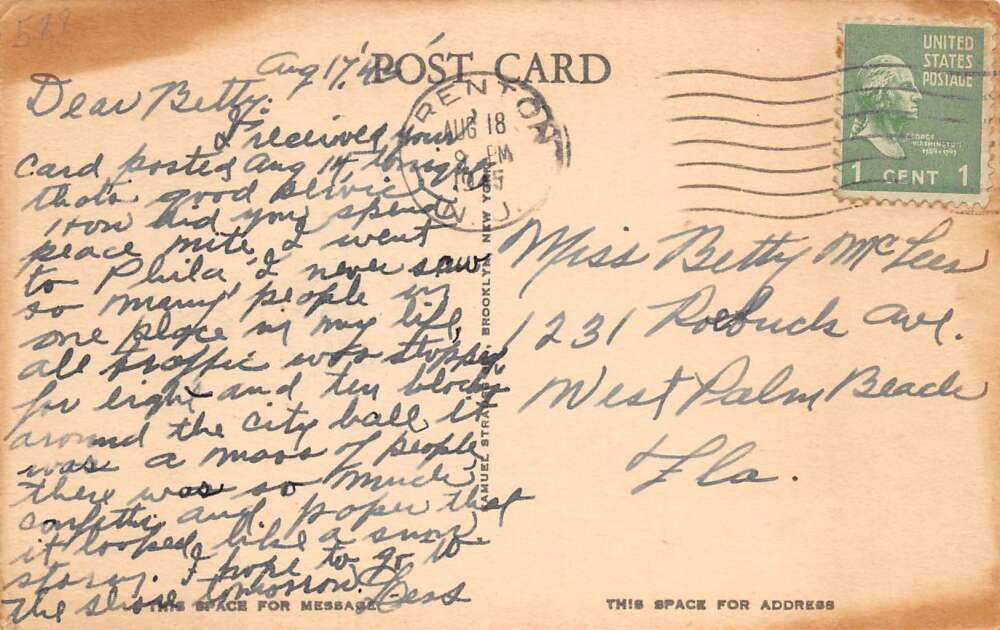 588
POST CARD
Aug 17, '45
Dear Betty:
I received your
card posted Aug 14 tonight
that's good service
How did you spend
peace nite, I went
to Phila I never saw
so many people in
one place in my life,
all traffic was stopped
for eight and ten blocks
around the city hall it
was a mass of people
there was so much
confetti and paper that
it looked like a snow
storm. I hope to go to
the shore tomorrow.
THIS SPACE FOR MESSAGE
TRENTON
AUG 18
PM
1945
N.J.
UNITED
STATES
POSTAGE
GEORGE
WASHINGTON
1789-1797
1 CENT 1
Miss Betty McLees
1231 Roebuck Ave.
West Palm Beach
Fla.
BROOKLYN, NEW YORK
THIS SPACE FOR ADDRESS